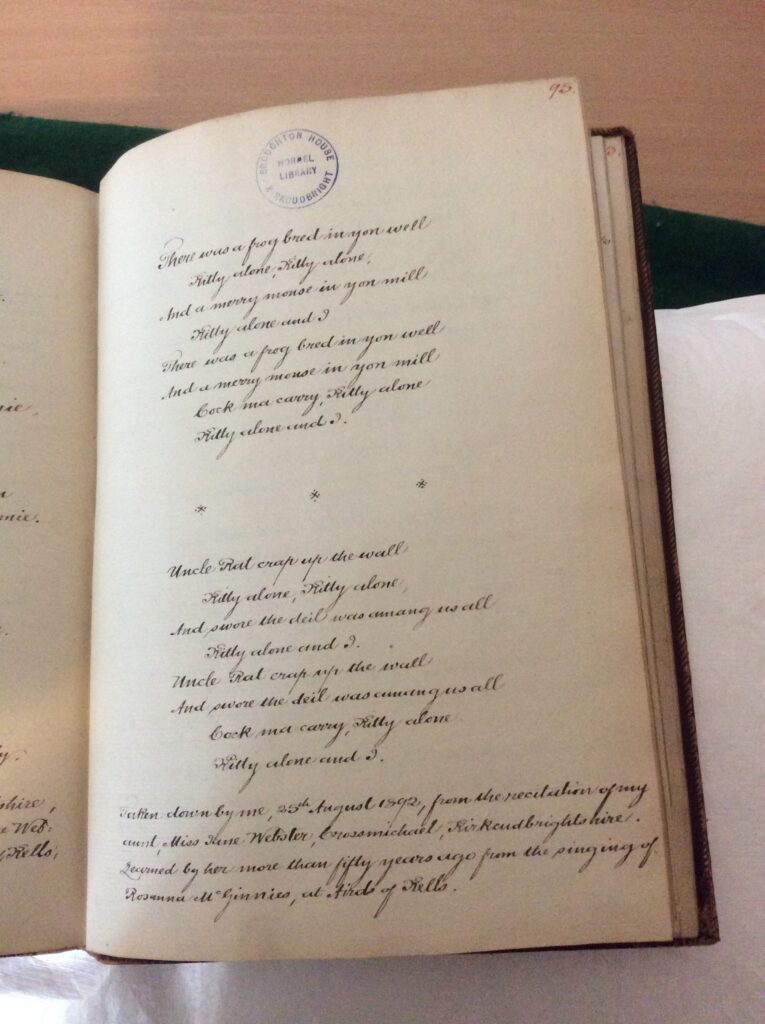 nie.
n
nie.
y.
shire,
e Web-
Kells,
95.
BROUGHTON HOUSE
HORNEL
LIBRARY
KIRKCUDBRIGHT
There was a frog bred in yon well
Kitty alone, Kitty alone,
And a merry mouse in yon mill
Kitty alone and I
There was a frog bred in yon well
And a merry mouse in yon mill
Cock ma carry, Kitty alone
Kitty alone and I.
* * *
Uncle Rat crap up the wall
Kitty alone, Kitty alone,
And swore the deil was amang us all
Kitty alone and I.
Uncle Rat crap up the wall
And swore the deil was amang us all
Cock ma carry, Kitty alone
Kitty alone and I.
Taken down by me, 25th August 1892, from the recitation of my
aunt, Miss Jane Webster, Crossmichael, Kirkcudbrightshire.
Learned by her more than fifty years ago from the singing of
Rosanna McGinnies, at Airds of Kells.